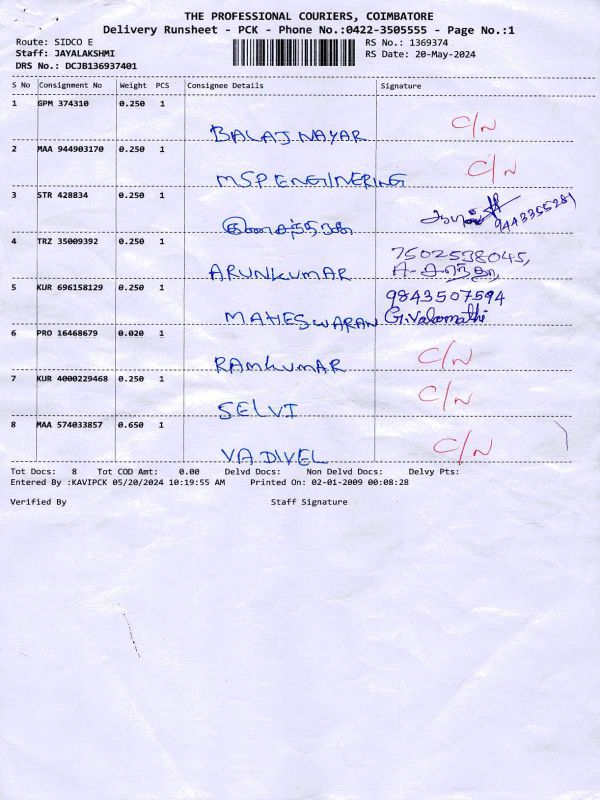 THE PROFESSIONAL COURIERS, COIMBATORE
Delivery Runsheet - PCK - Phone No.:0422-3505555 - Page No.:1
Route: SIDCO E
RS No.: 1369374
Staff: JAYALAKSHMI
RS Date: 20-May-2024
DRS No.: DCJB136937401
S No Consignment No Weight PCS Consignee Details Signature
1 GPM 374310 0.250 1 C/N
BALAJ NAYAR
2 MAA 944903170 0.250 1 C/N
MSP ENGINERING
3 STR 428834 0.250 1 9443355281
4 TRZ 35009392 0.250 1 7502538045,
ARUNKUMAR
5 KUR 696158129 0.250 1 9843507594
MAHESWARAN G.Valarmathi
6 PRO 16468679 0.020 1 C/N
RAMKUMAR
7 KUR 4000229468 0.250 1 C/N
SELVI
8 MAA 574033857 0.650 1 C/N
VADIVEL
Tot Docs: 8 Tot COD Amt: 0.00 Delvd Docs: Non Delvd Docs: Delvy Pts:
Entered By :KAVIPCK 05/20/2024 10:19:55 AM Printed On: 02-01-2009 00:08:28
Verified By Staff Signature